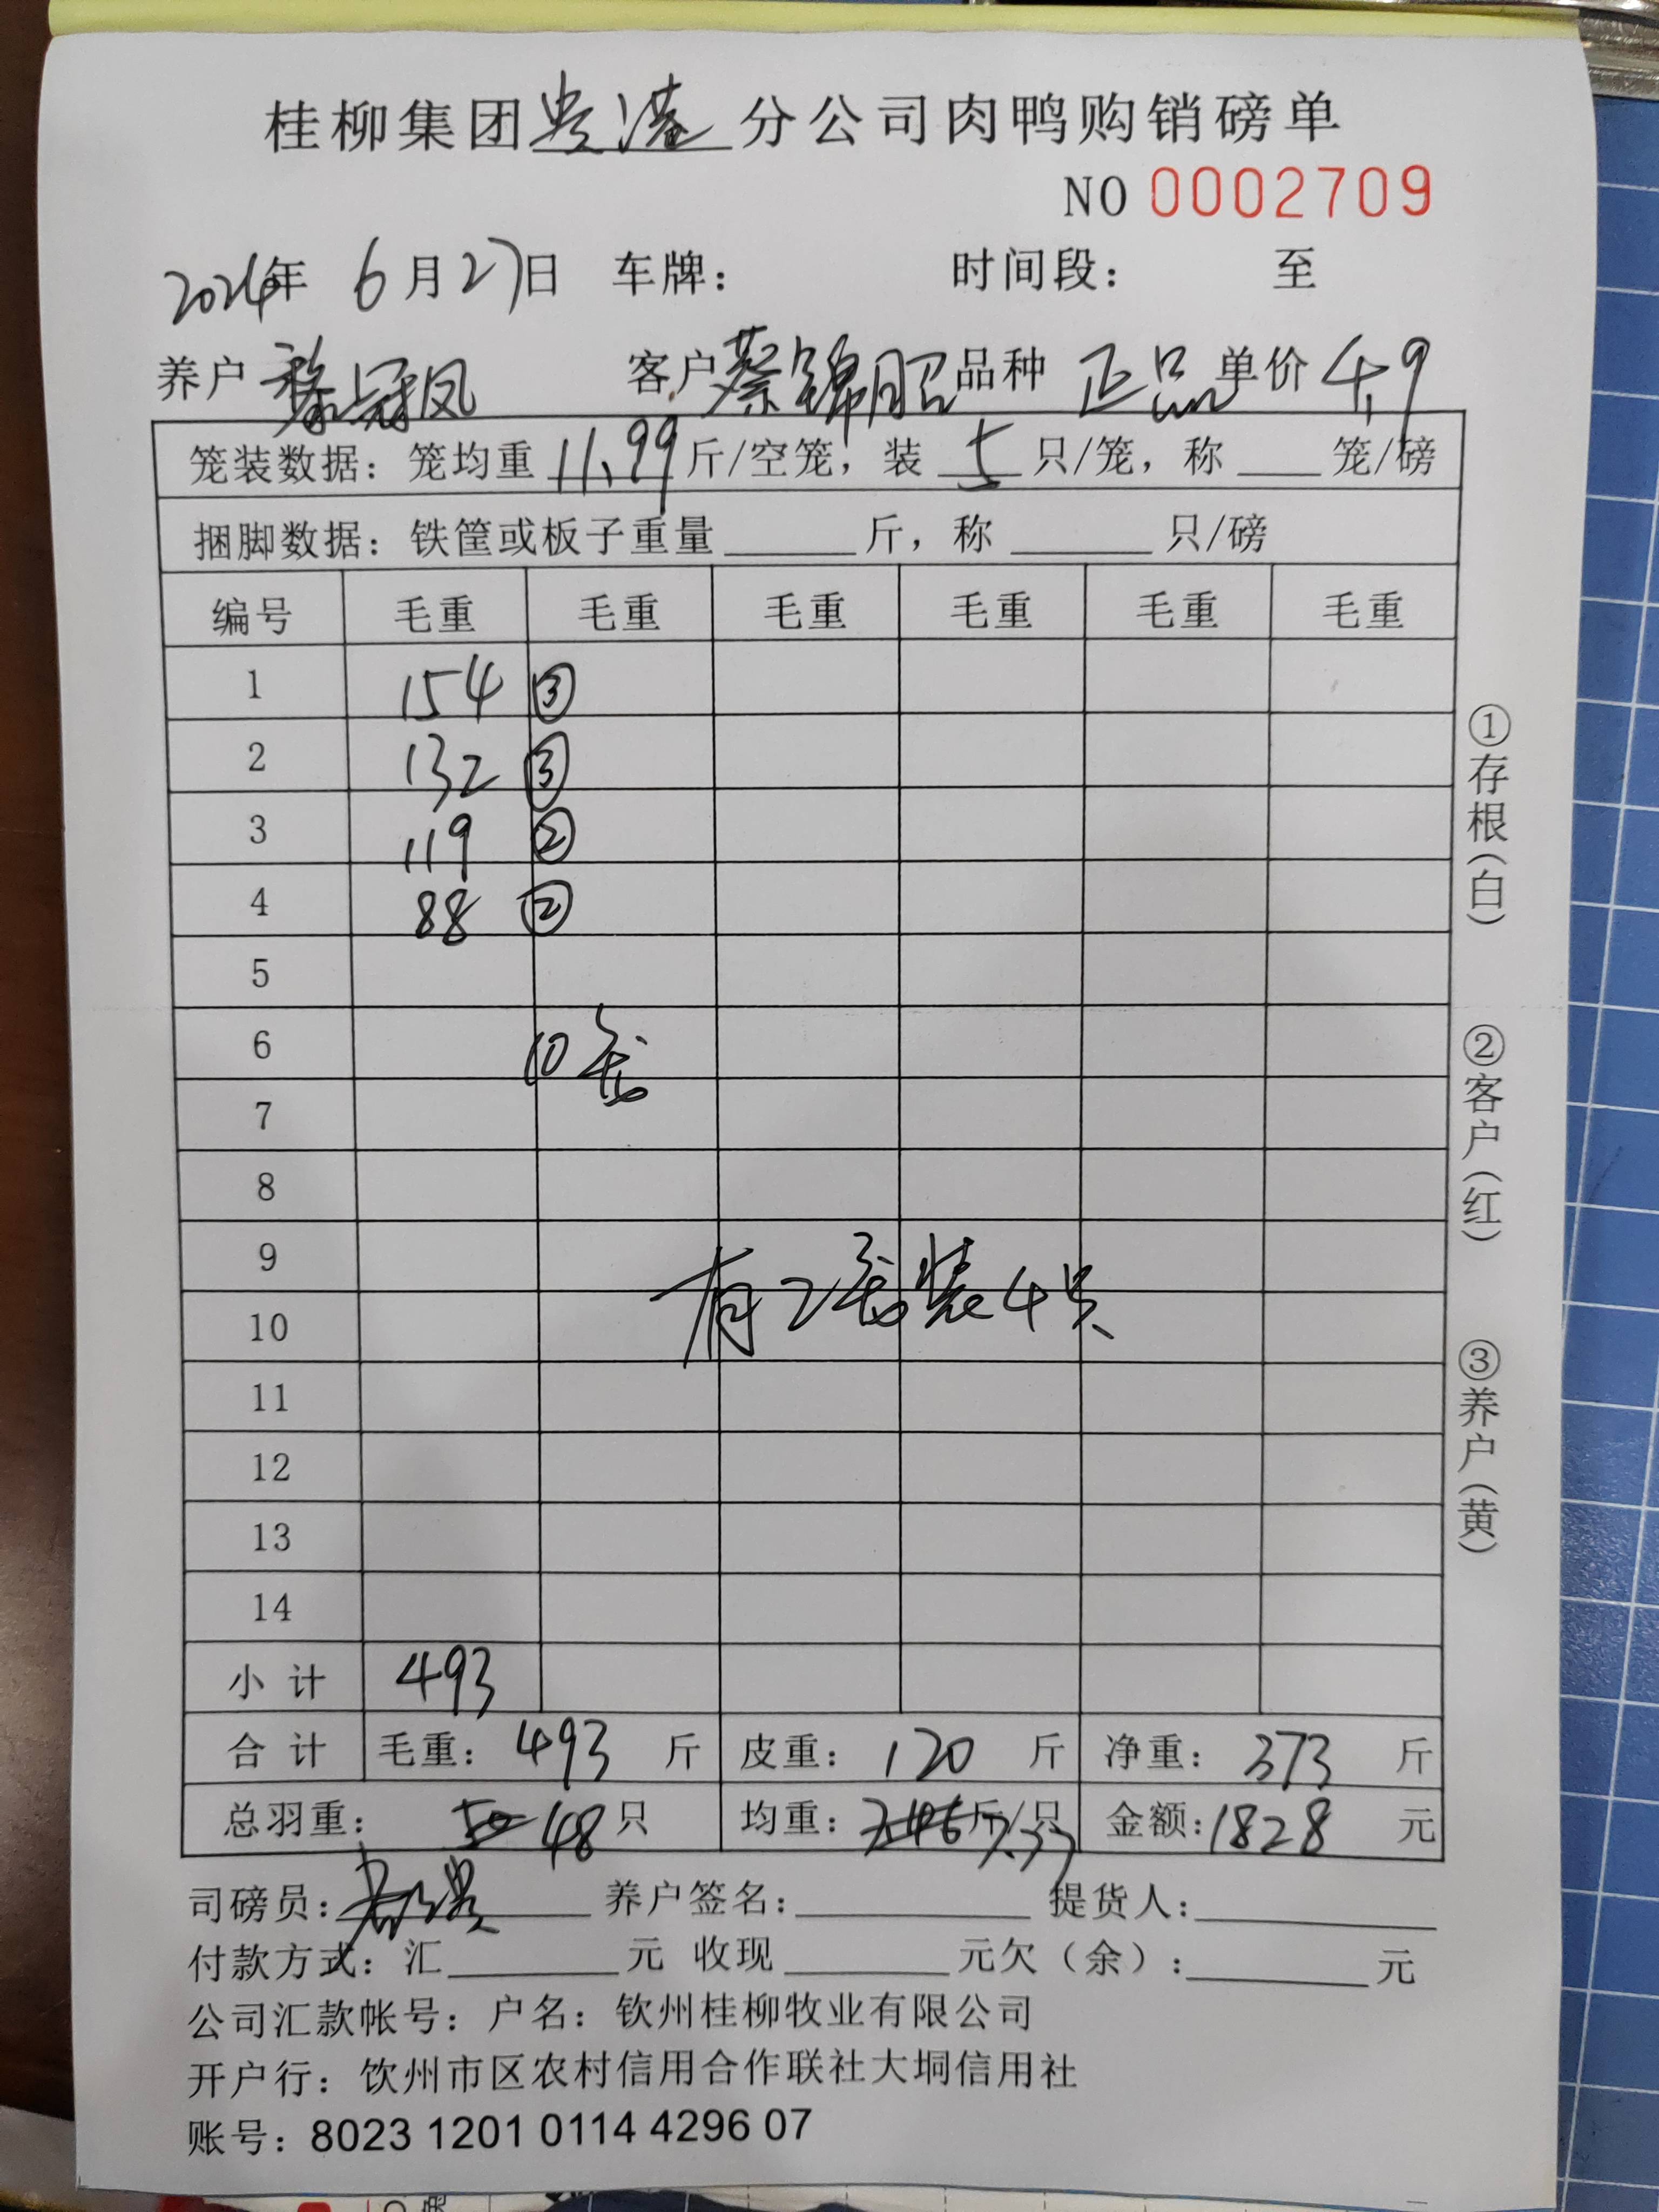 桂柳集团贵港分公司肉鸭购销磅单
NO 0002709
2024年 6月27日 车牌： 时间段： 至
养户 黎冠凤 客户 蔡锦昭 品种 正品 单价 4.9
笼装数据：笼均重 11.99 斤/空笼，装 5 只/笼，称 笼/磅
捆脚数据：铁筐或板子重量 斤，称 只/磅
编号 毛重 毛重 毛重 毛重 毛重 毛重
1 154 ③
2 132 ③
3 119 ②
4 88 ②
5
6 10笼
7
8
9
有2笼装4只
10
11
12
13
14
小计 493
合计 毛重：493 斤 皮重：120 斤 净重：373 斤
总羽重：50 48只 均重：7.46斤/只 7.77 金额：1828 元
司磅员： 养户签名： 提货人：
付款方式：汇 元 收现 元欠（余）： 元
公司汇款帐号：户名：钦州桂柳牧业有限公司
开户行：钦州市区农村信用合作联社大垌信用社
账号：8023 1201 0114 4296 07
①存根（白）
②客户（红）
③养户（黄）